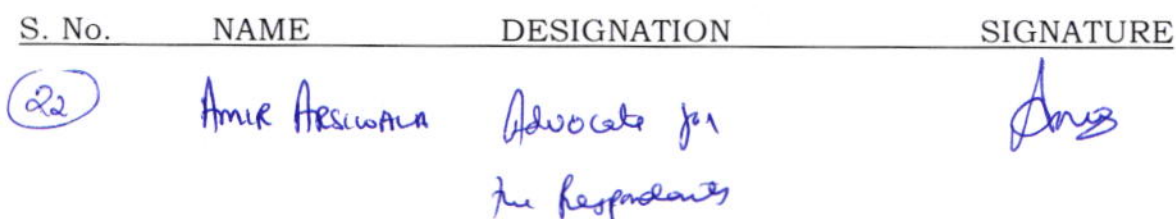 S. No. NAME DESIGNATION SIGNATURE
22 AMIR ARSIWALA Advocate for
the Respondents